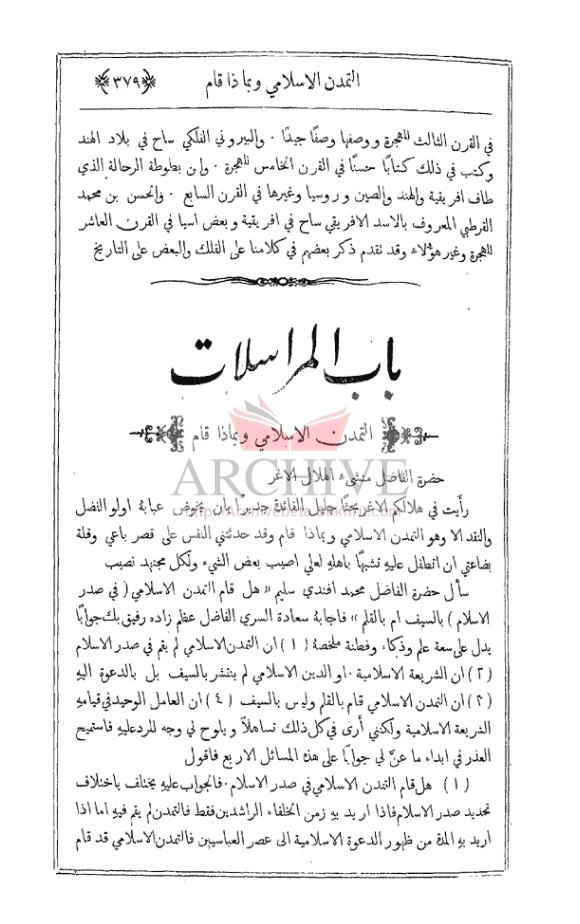 التمدن الاسلامي وبماذا قام ﴿٣٧٩﴾
في القرن الثالث للهجرة ووصفها وصفًا جيدًا . والبيروني الفلكي ساح في بلاد الهند
وكتب في ذلك كتابًا حسنًا في القرن الخامس للهجرة . وابن بطوطة الرحالة الذي
طاف افريقية والهند والصين وروسيا وغيرها في القرن السابع . والحسن بن محمد
القرطبي المعروف بالاسد الافريقي ساح في افريقية وبعض اسيا في القرن العاشر
للهجرة وغير هؤلاء وقد تقدم ذكر بعضهم في كلامنا على الفلك والبعض على التاريخ
باب المراسلات
التمدن الاسلامي وبماذا قام
ARCHIVE
حضرة الفاضل منشىء الهلال الاغر
رأيت في هلالكم الاغر بحثًا جليل الفائدة جديرًا بان يخوض عبابة اولو الفضل
والنقد الا وهو التمدن الاسلامي وبماذا قام وقد حدثتني النفس على قصر باعي وقلة
بضاعتي ان اتطفل عليه تشبهًا باهله لعلي اصيب بعض الشيء ولكل مجتهد نصيب
سأل حضرة الفاضل محمد افندي سليم « هل قام التمدن الاسلامي ( في صدر
الاسلام ) بالسيف ام بالقلم » فاجابة سعادة السري الفاضل عظم زاده رفيق بك جوابًا
يدل على سعة علم وذكاء وفطنة ملخصة ( ١ ) ان التمدن الاسلامي لم يقم في صدر الاسلام
( ٢ ) ان الشريعة الاسلامية او الدين الاسلامي لم ينتشر بالسيف بل بالدعوة اليه
( ٣ ) ان التمدن الاسلامي قام بالقلم وليس بالسيف ( ٤ ) ان العامل الوحيد في قيامه
الشريعة الاسلامية ولكنني أرى في كل ذلك تساهلاً ويلوح لي وجه للرد عليه فاستميح
العذر في ابداء ما عنّ لي جوابًا على هذه المسائل الاربع فاقول
( ١ ) هل قام التمدن الاسلامي في صدر الاسلام . فالجواب عليه يختلف باختلاف
تحديد صدر الاسلام فاذا اريد به زمن الخلفاء الراشدين فقط فالتمدن لم يقم فيه اما اذا
اريد به المدة من ظهور الدعوة الاسلامية الى عصر العباسيين فالتمدن الاسلامي قد قام